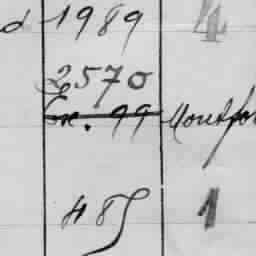 d 1989 4
2570
Ex. 99 Montfor
485 1